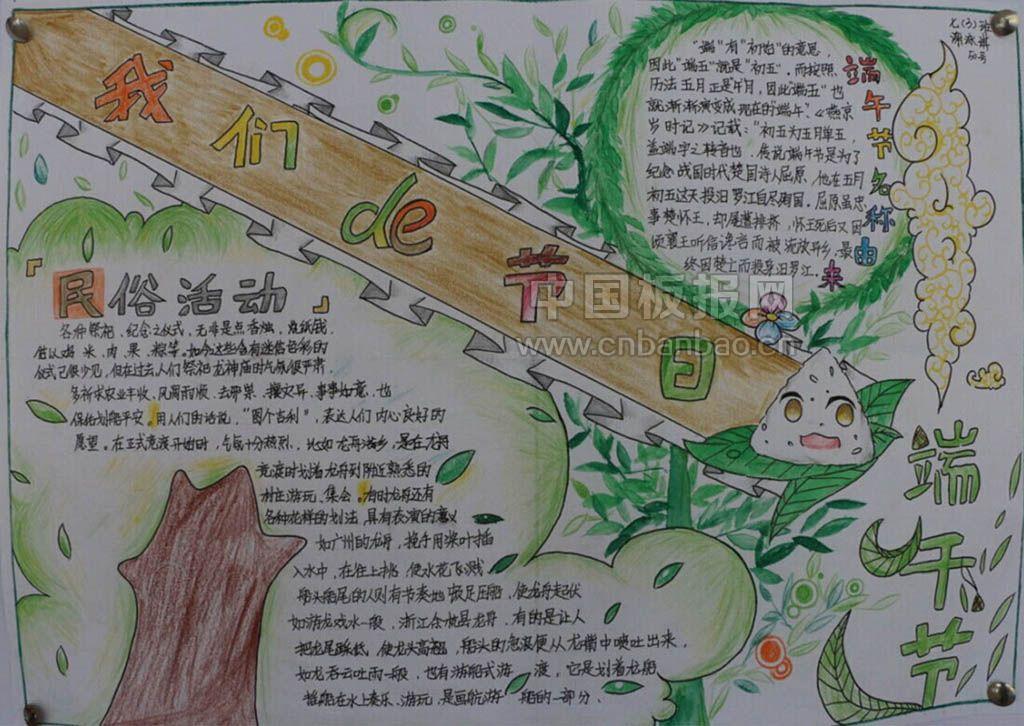 七(3)班
我们de节日
端午节名称由来
"端"有"初始"的意思,
因此"端五"就是"初五",而按照
历法五月正是午月,因此"端五"也
就渐渐演变成现在的"端午"。《燕京
岁时记》记载:"初五为五月单五,
盖端字之转音也。传说端午节是为了
纪念战国时代楚国诗人屈原,他在五月
初五这天投汨罗江自尽殉国。屈原虽忠
事楚怀王,却屡遭排挤,怀王死后又因
顷襄王听信谗言而被流放异乡,最
终因楚亡而投身汨罗江.
中国板报网
www.cnbanbao.cn
「民俗活动」
各种祭祀、纪念之仪式,无非是点香烛,烧纸钱,
米、肉、果、粽等。如今这些含有迷信色彩的
仪式已很少见,但在过去人们祭祀龙神庙时气氛很严肃,
多祈求农业丰收、风调雨顺、去邪祟、攘灾异、事事如意,也
保佑划船平安。用人们的话说,"图个吉利",表达人们内心良好的
愿望。在正式竞渡开始时,气氛十分热烈。比如龙舟
竞渡时划着龙舟到附近熟悉的
村庄游玩、集会。有时龙舟还有
各种花样的划法,具有表演的意义
如广州的龙舟,挽手用桨叶插
入水中,在往上挑,使水花飞溅
船头船尾的人则有节奏地顿足压船,使龙舟起伏
如游龙戏水一般,浙江余杭县龙舟,有的是让人
把龙尾踩低,使龙头高翘,船头的急浪便从龙嘴中喷吐出来,
如龙吞云吐雨一般,也有游船式游一渡,它是划着龙船
水上奏乐、游玩,是画舫游船的一部分。
端午节